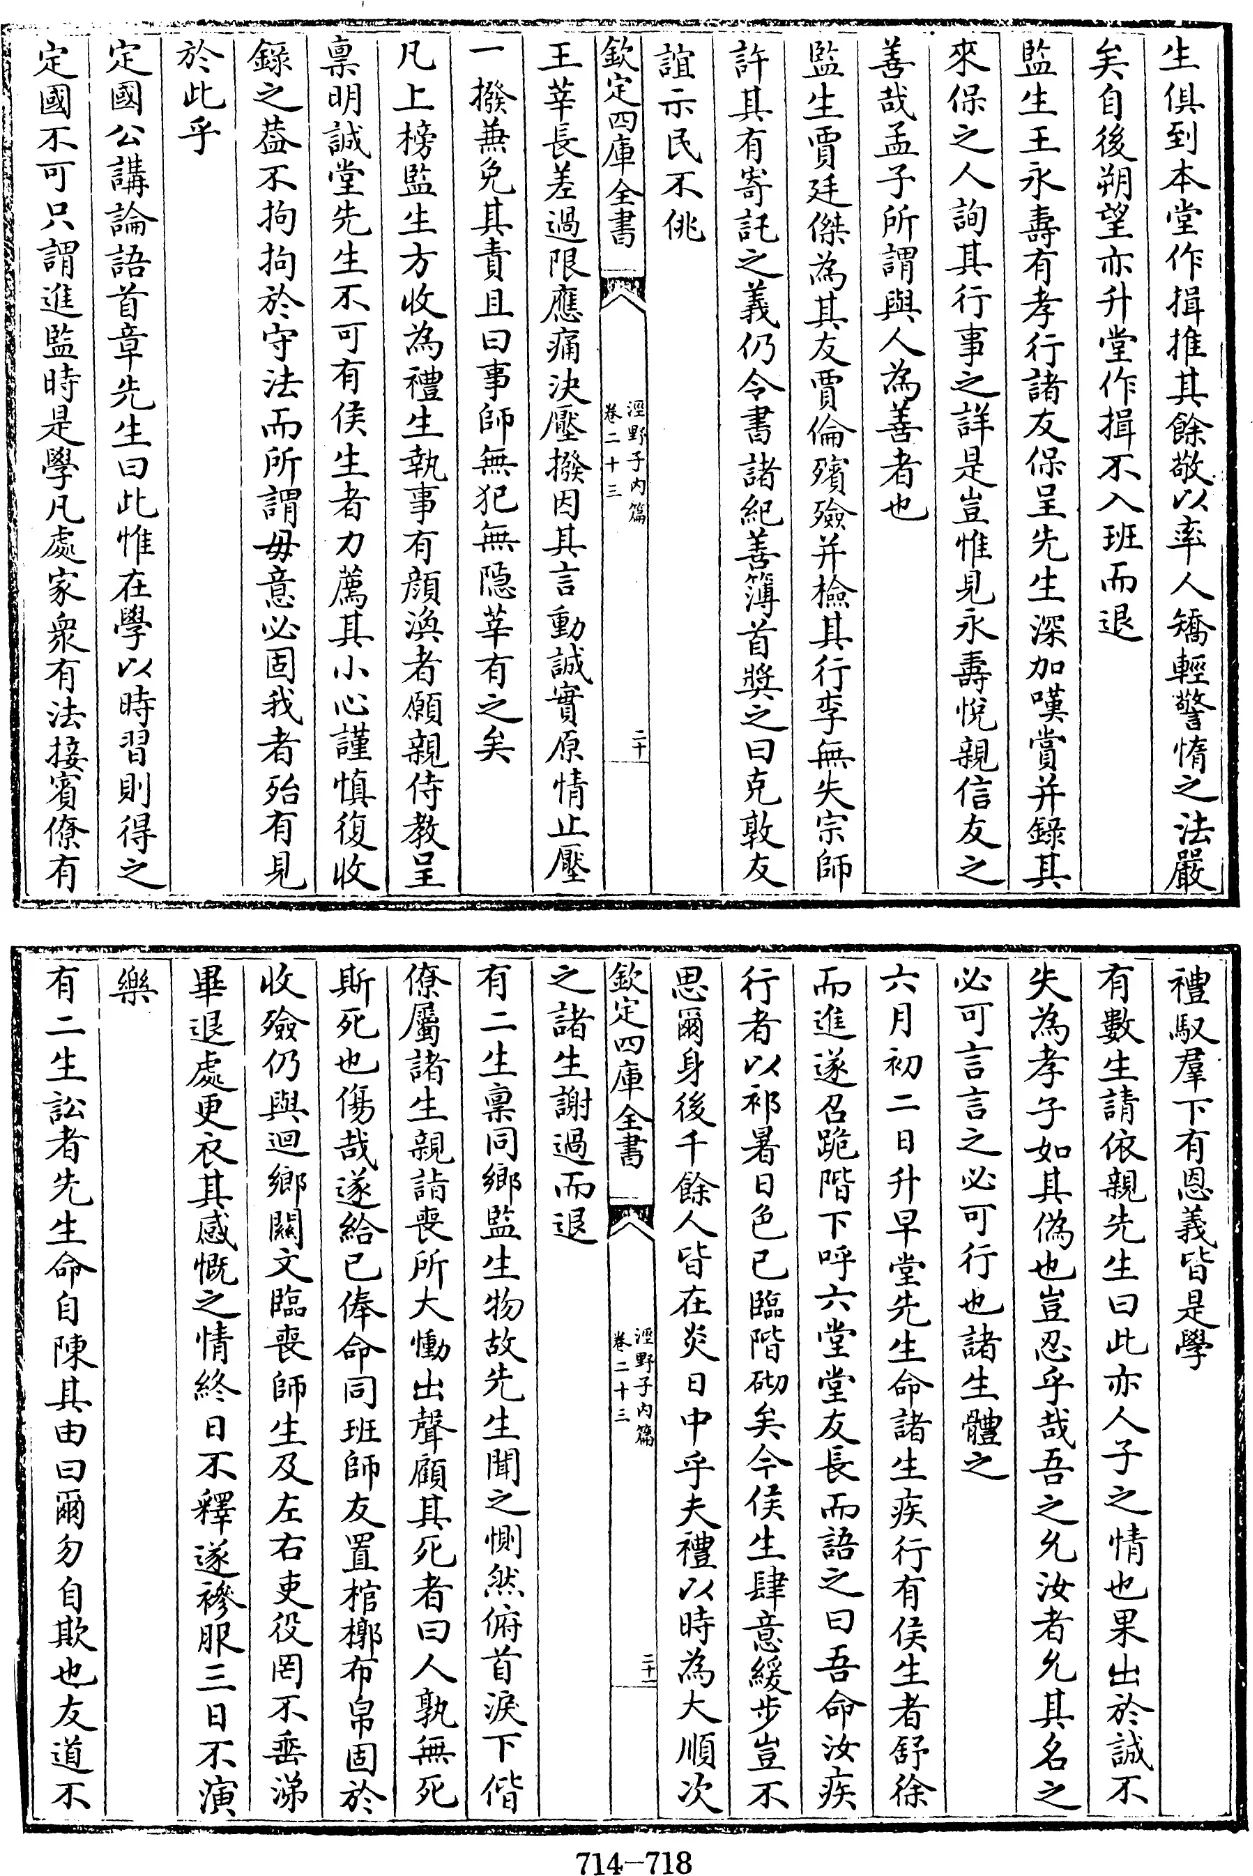 生俱到本堂作揖推其餘敬以率人矯輕警惰之法嚴
矣自後朔望亦升堂作揖不入班而退
監生王永壽有孝行諸友保呈先生深加嘆賞并錄其
來保之人詢其行事之詳是豈惟見永壽悅親信友之
善哉孟子所謂與人為善者也
監生賈廷傑為其友賈倫殯殮并檢其行李無失宗師
許其有寄託之義仍令書諸紀善簿首獎之曰克敦友
誼示民不佻
欽定四庫全書
涇野子內篇
卷二十三
二十
王莘長差過限應痛決壓撥因其言動誠實原情止壓
一撥兼免其責且曰事師無犯無隠莘有之矣
凡上榜監生方收為禮生執事有顏渙者願親侍教呈
禀明誠堂先生不可有侯生者力薦其小心謹慎復收
錄之葢不拘拘於守法而所謂毋意必固我者殆有見
於此乎
定國公講論語首章先生曰此惟在學以時習則得之
定國不可只謂進監時是學凡處家衆有法接賓僚有
禮馭羣下有恩義皆是學
有數生請依親先生曰此亦人子之情也果出於誠不
失為孝子如其偽也豈忍乎哉吾之允汝者允其名之
必可言言之必可行也諸生體之
六月初二日升早堂先生命諸生疾行有侯生者舒徐
而進遂召跪階下呼六堂堂友長而語之曰吾命汝疾
行者以祁暑日色已臨階砌矣今侯生肆意緩步豈不
思爾身後千餘人皆在炎日中乎夫禮以時為大順次
欽定四庫全書
涇野子內篇
卷二十三
二十一
之諸生謝過而退
有二生禀同鄉監生物故先生聞之惻然俯首淚下偕
僚屬諸生親詣喪所大慟出聲顧其死者曰人孰無死
斯死也傷哉遂給已俸命同班師友置棺槨布帛固於
收殮仍與迴鄉關文臨喪師生及左右吏役罔不垂涕
畢退處更衣其感慨之情終日不釋遂襂服三日不演
樂
有二生訟者先生命自陳其由曰爾勿自欺也友道不
714—718